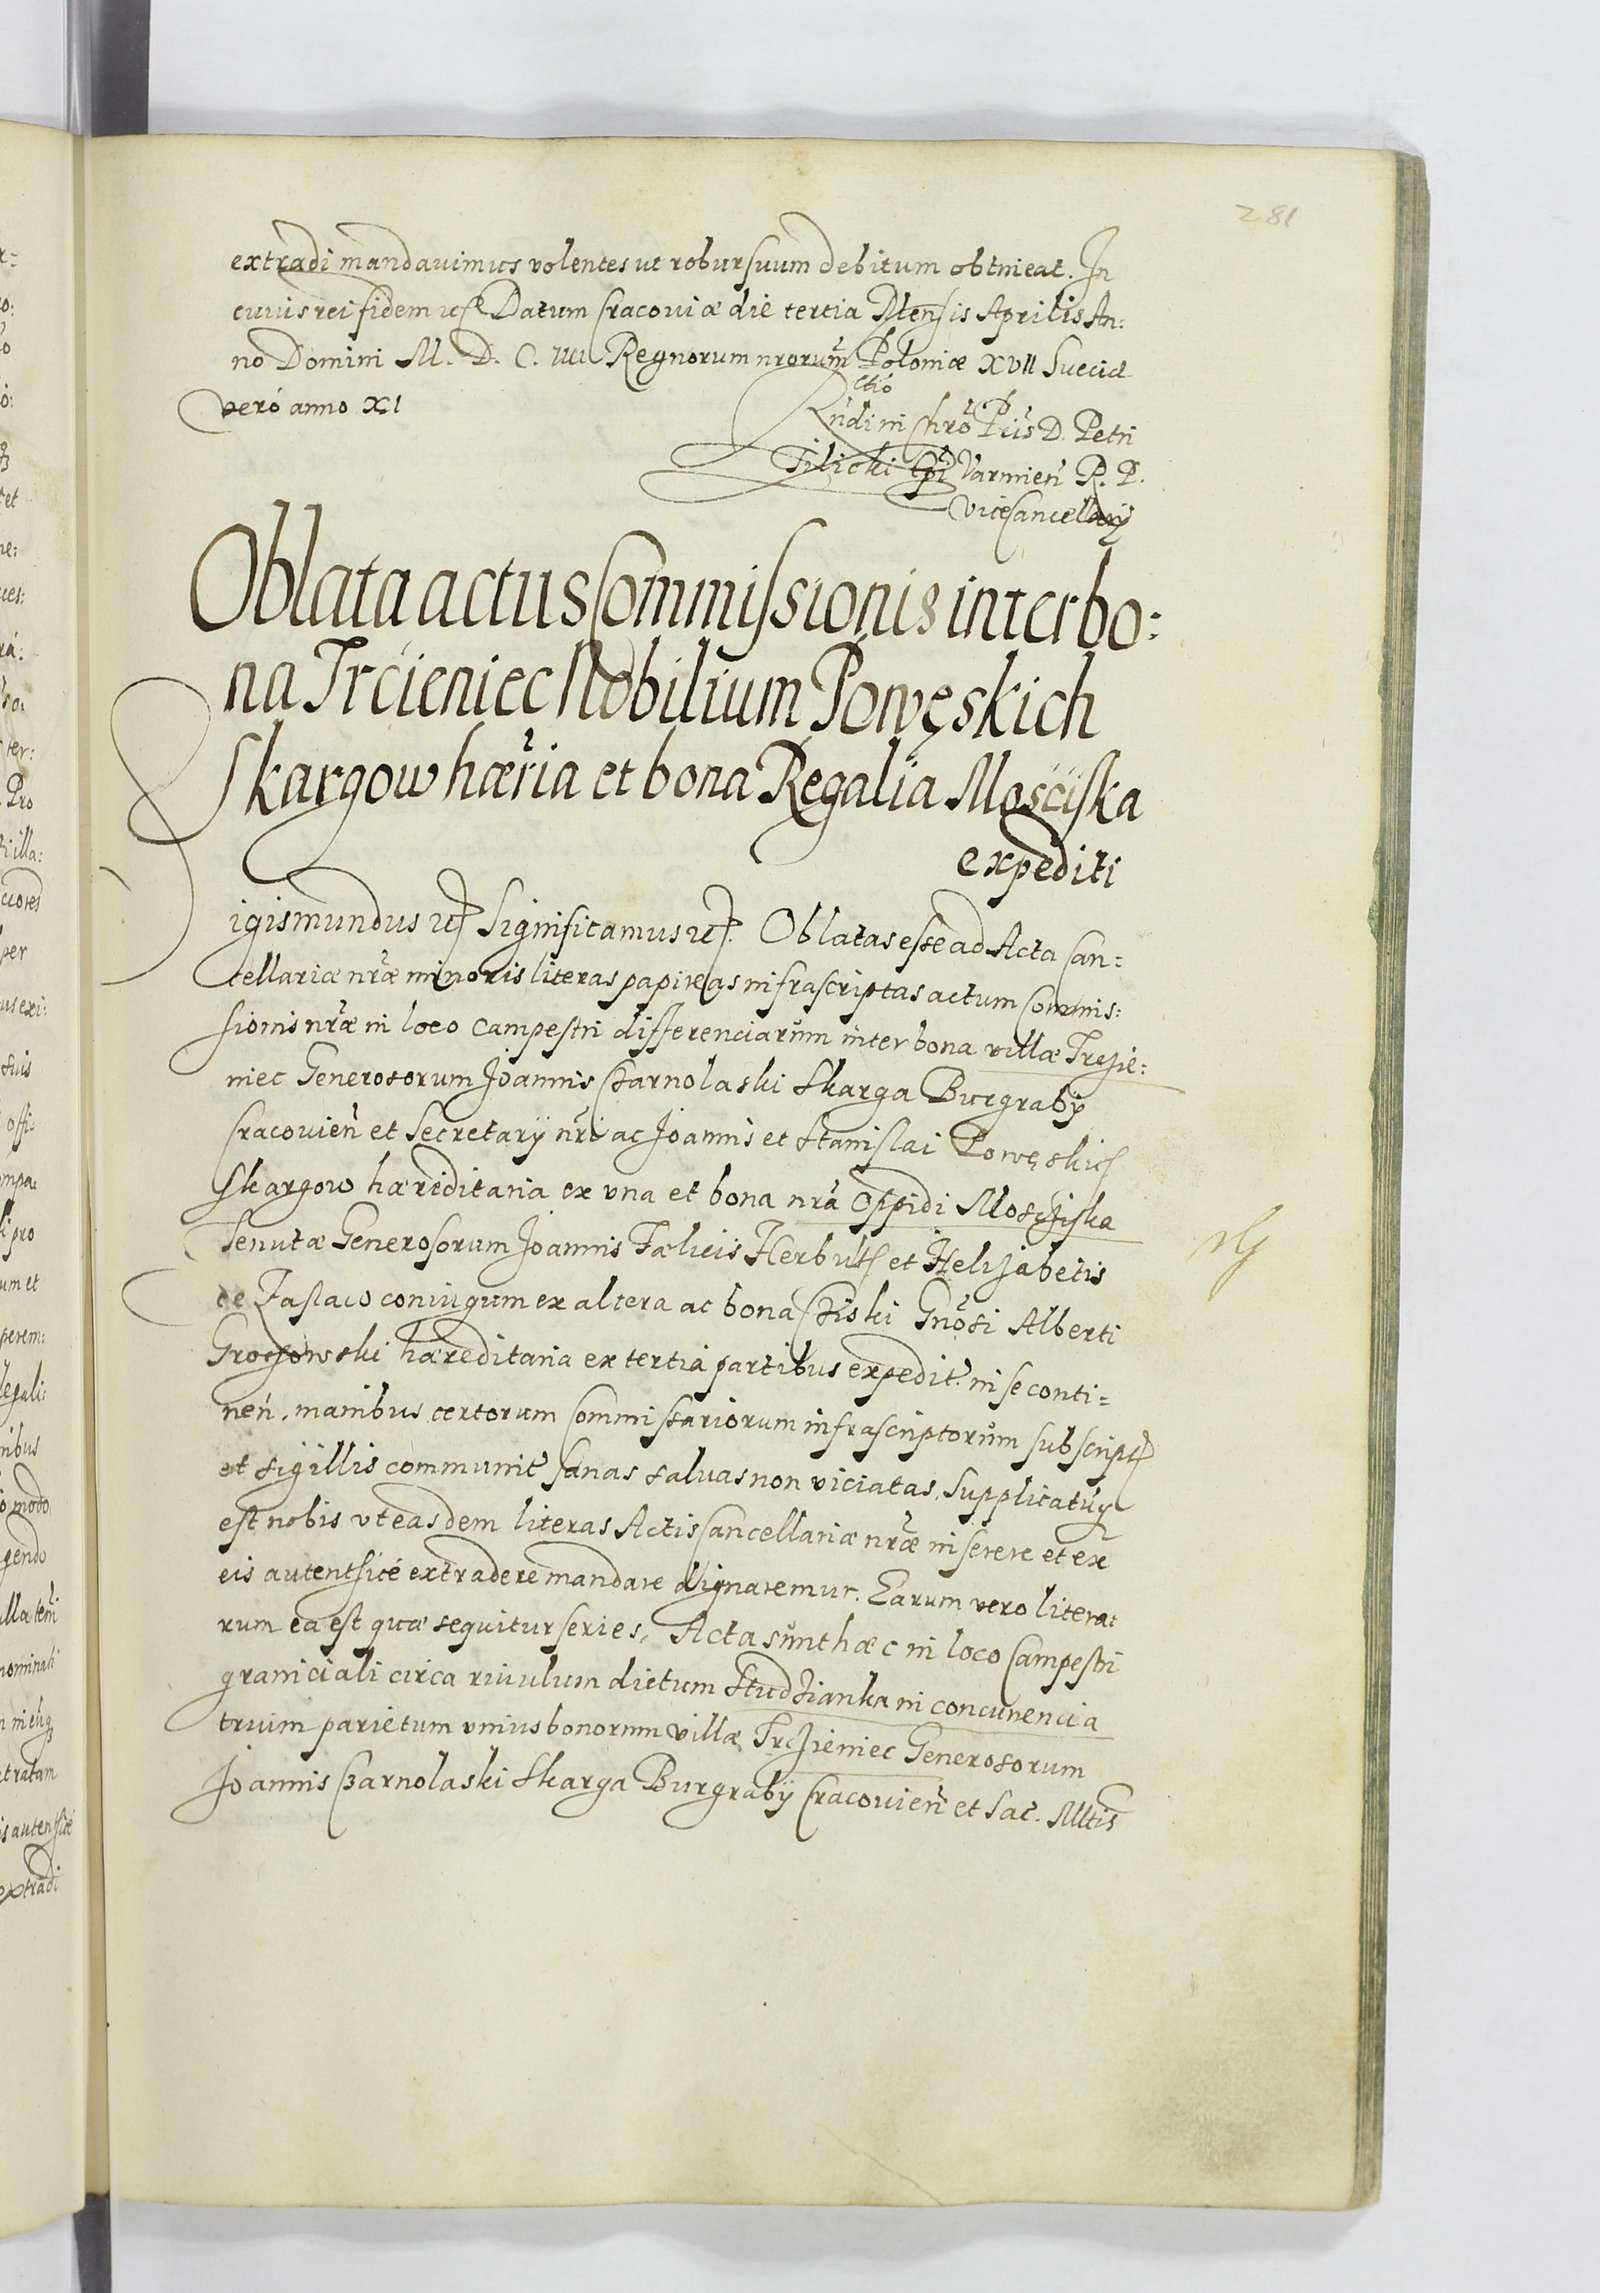 281
extradi mandauimus volentes ut robur suum debitum obtineat. In
cuius rei fidem etc Datum Cracouiæ die tertia Mensis Aprilis An:
no Domini M. D. C. IIII Regnorum nrorum Poloniæ XVII Sueciæ
vero anno XI
ctio
Rndi in Chro Pris D. Petri
Tilicki Epi Varmien R. P.
Vicecancellarij
Oblata actus Commissionis inter bo:
na Trcieniec Nobilium Powęskich
Skargow hæria et bona Regalia Mosciska
expediti
igismundus etc Significamus etc. Oblatas esse ad Acta Can:
cellariæ nræ minoris literas papireas infrascriptas actum Commis:
sionis nræ in loco campestri differenciarum inter bona villæ Trczie:
niec Generosorum Joannis Czarnolaski Skarga Burgrabij
Cracouien et Secretarij nri ac Joannis et Stanislai Powęskich
Skargow hæreditaria ex vna et bona nra Oppidi Mosciska
Tenutæ Generosorum Joannis Fælicis Herbult et Helizabetis
de Zaslaw coniugum ex altera ac bona Cziski Gnosi Alberti
hæreditaria ex tertia partibus expedit. in se conti=
nen, manibus certorum Commissariorum infrascriptorum subscript
et sigillis communit sanas saluas non viciatas, Supplicatuq
est nobis vt easdem literas Actis Cancellariæ nræ inserere et ex
eis autentice extradere mandare dignaremur. Earum vero litera:
rum ea est quæ sequitur series, Acta sunt hæc in loco Campestri
graniciali circa riuulum dictum Studzianka in concurencia
trium parietum vnius bonorum villæ Trczieniec Generosorum
Joannis Czarnolaski Skarga Burgrabij Cracouien et Sac. Mttis